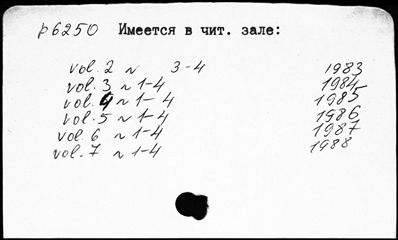 p6250 Имеется в чит. зале:
vol. 2 ~ 3-4 1983
vol. 3 ~ 1-4 1984
vol. 4 ~ 1-4 1985
vol. 5 ~ 1-4 1986
vol. 6 ~ 1-4 1987
vol. 7 ~ 1-4 1988